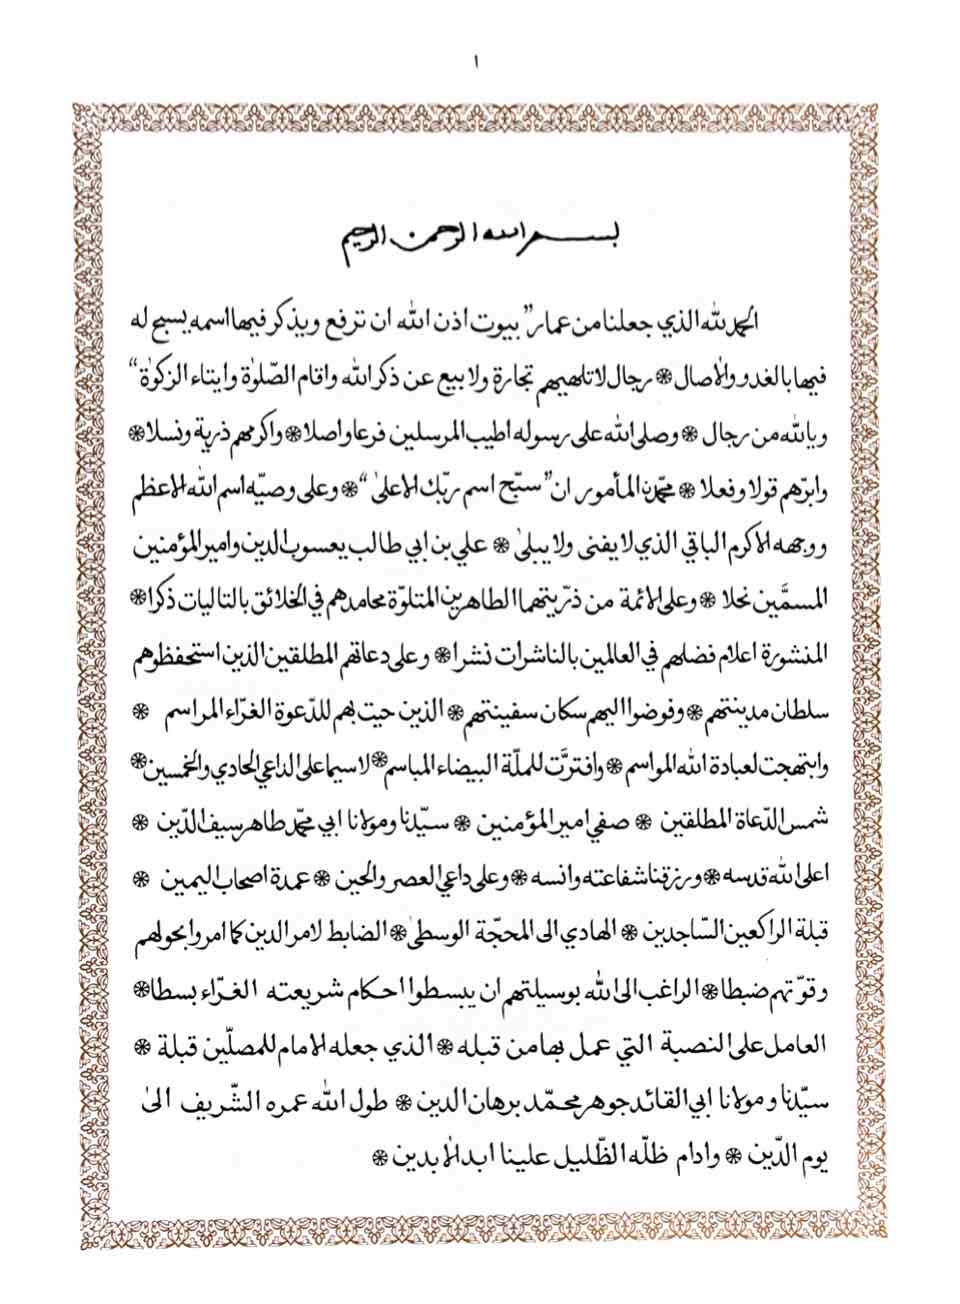 ١
بسم الله الرحمن الرحيم
الحمد لله الذي جعلنا من عمار "بيوت اذن الله ان ترفع ويذكر فيها اسمه يسبح له
فيها بالغدو والاصال ❋ رجال لا تلهيهم تجارة ولا بيع عن ذكر الله واقام الصّلوٰة وايتاء الزكوٰة"
ويالله من رجال ❋ وصلى الله على رسوله اطيب المرسلين فرعا واصلا ❋ واكرمهم ذرية ونسلا ❋
وابرّهم قولا وفعلا ❋ محمّد المأمور ان "سبّح اسم ربّك الاعلىٰ" ❋ وعلى وصيّه اسم الله الاعظم
ووجهه الاكرم الباقي الذي لا يفنى ولا يبلىٰ ❋ علي بن ابي طالب يعسوب الدين وامير المؤمنين
المسمَّين نحلا ❋ وعلى الائمة من ذرّيتهما الطاهرين المتلوّة محامدهم في الخلائق بالتاليات ذكرا ❋
المنشورة اعلام فضلهم في العالمين بالناشرات نشرا ❋ وعلى دعاتهم المطلقين الذين استحفظوهم
سلطان مدينتهم ❋ وفوضوا اليهم سكان سفينتهم ❋ الذين حيت بهم للدّعوة الغرّاء المراسم ❋
وابتهجت لعبادة الله المواسم ❋ وافترَّت للملّة البيضاء المباسم ❋ لا سيما على الداعي الحادي والخمسين ❋
شمس الدّعاة المطلقين ❋ صفي امير المؤمنين ❋ سيّدنا ومولانا ابي محمّد طاهر سيف الدّين ❋
اعلى الله قدسه ❋ ورزقنا شفاعته وانسه ❋ وعلى داعي العصر والحين ❋ عمدة اصحاب اليمين ❋
قبلة الراكعين السّاجدين ❋ الهادي الى المحجّة الوسطىٰ ❋ الضابط لامر الدين كما امروا بحولهم
وقوّتهم ضبطا ❋ الراغب الى الله بوسيلتهم ان يبسطوا احكام شريعته الغرّاء بسطا ❋
العامل على النصبة التي عمل بها من قبله ❋ الذي جعله الامام للمصلّين قبلة ❋
سيّدنا ومولانا ابي القائد جوهر محمّد برهان الدين ❋ طول الله عمره الشّريف الىٰ
يوم الدّين ❋ وادام ظلّه الظّليل علينا ابد الابدين ❋